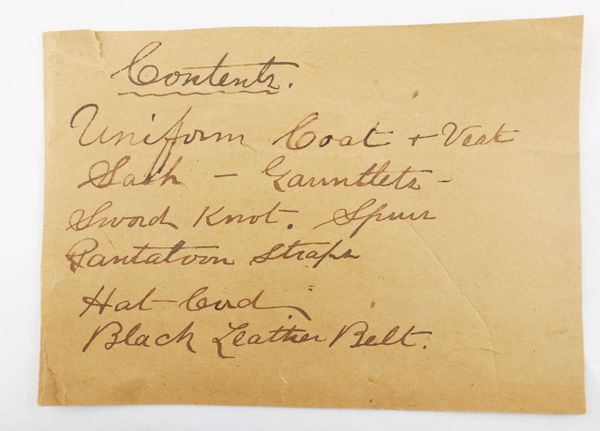 Contents.
Uniform Coat + Vest
Sash - Gauntlets -
Sword Knot. Spurs
Pantaloon Straps
Hat-Cord
Black Leather Belt.